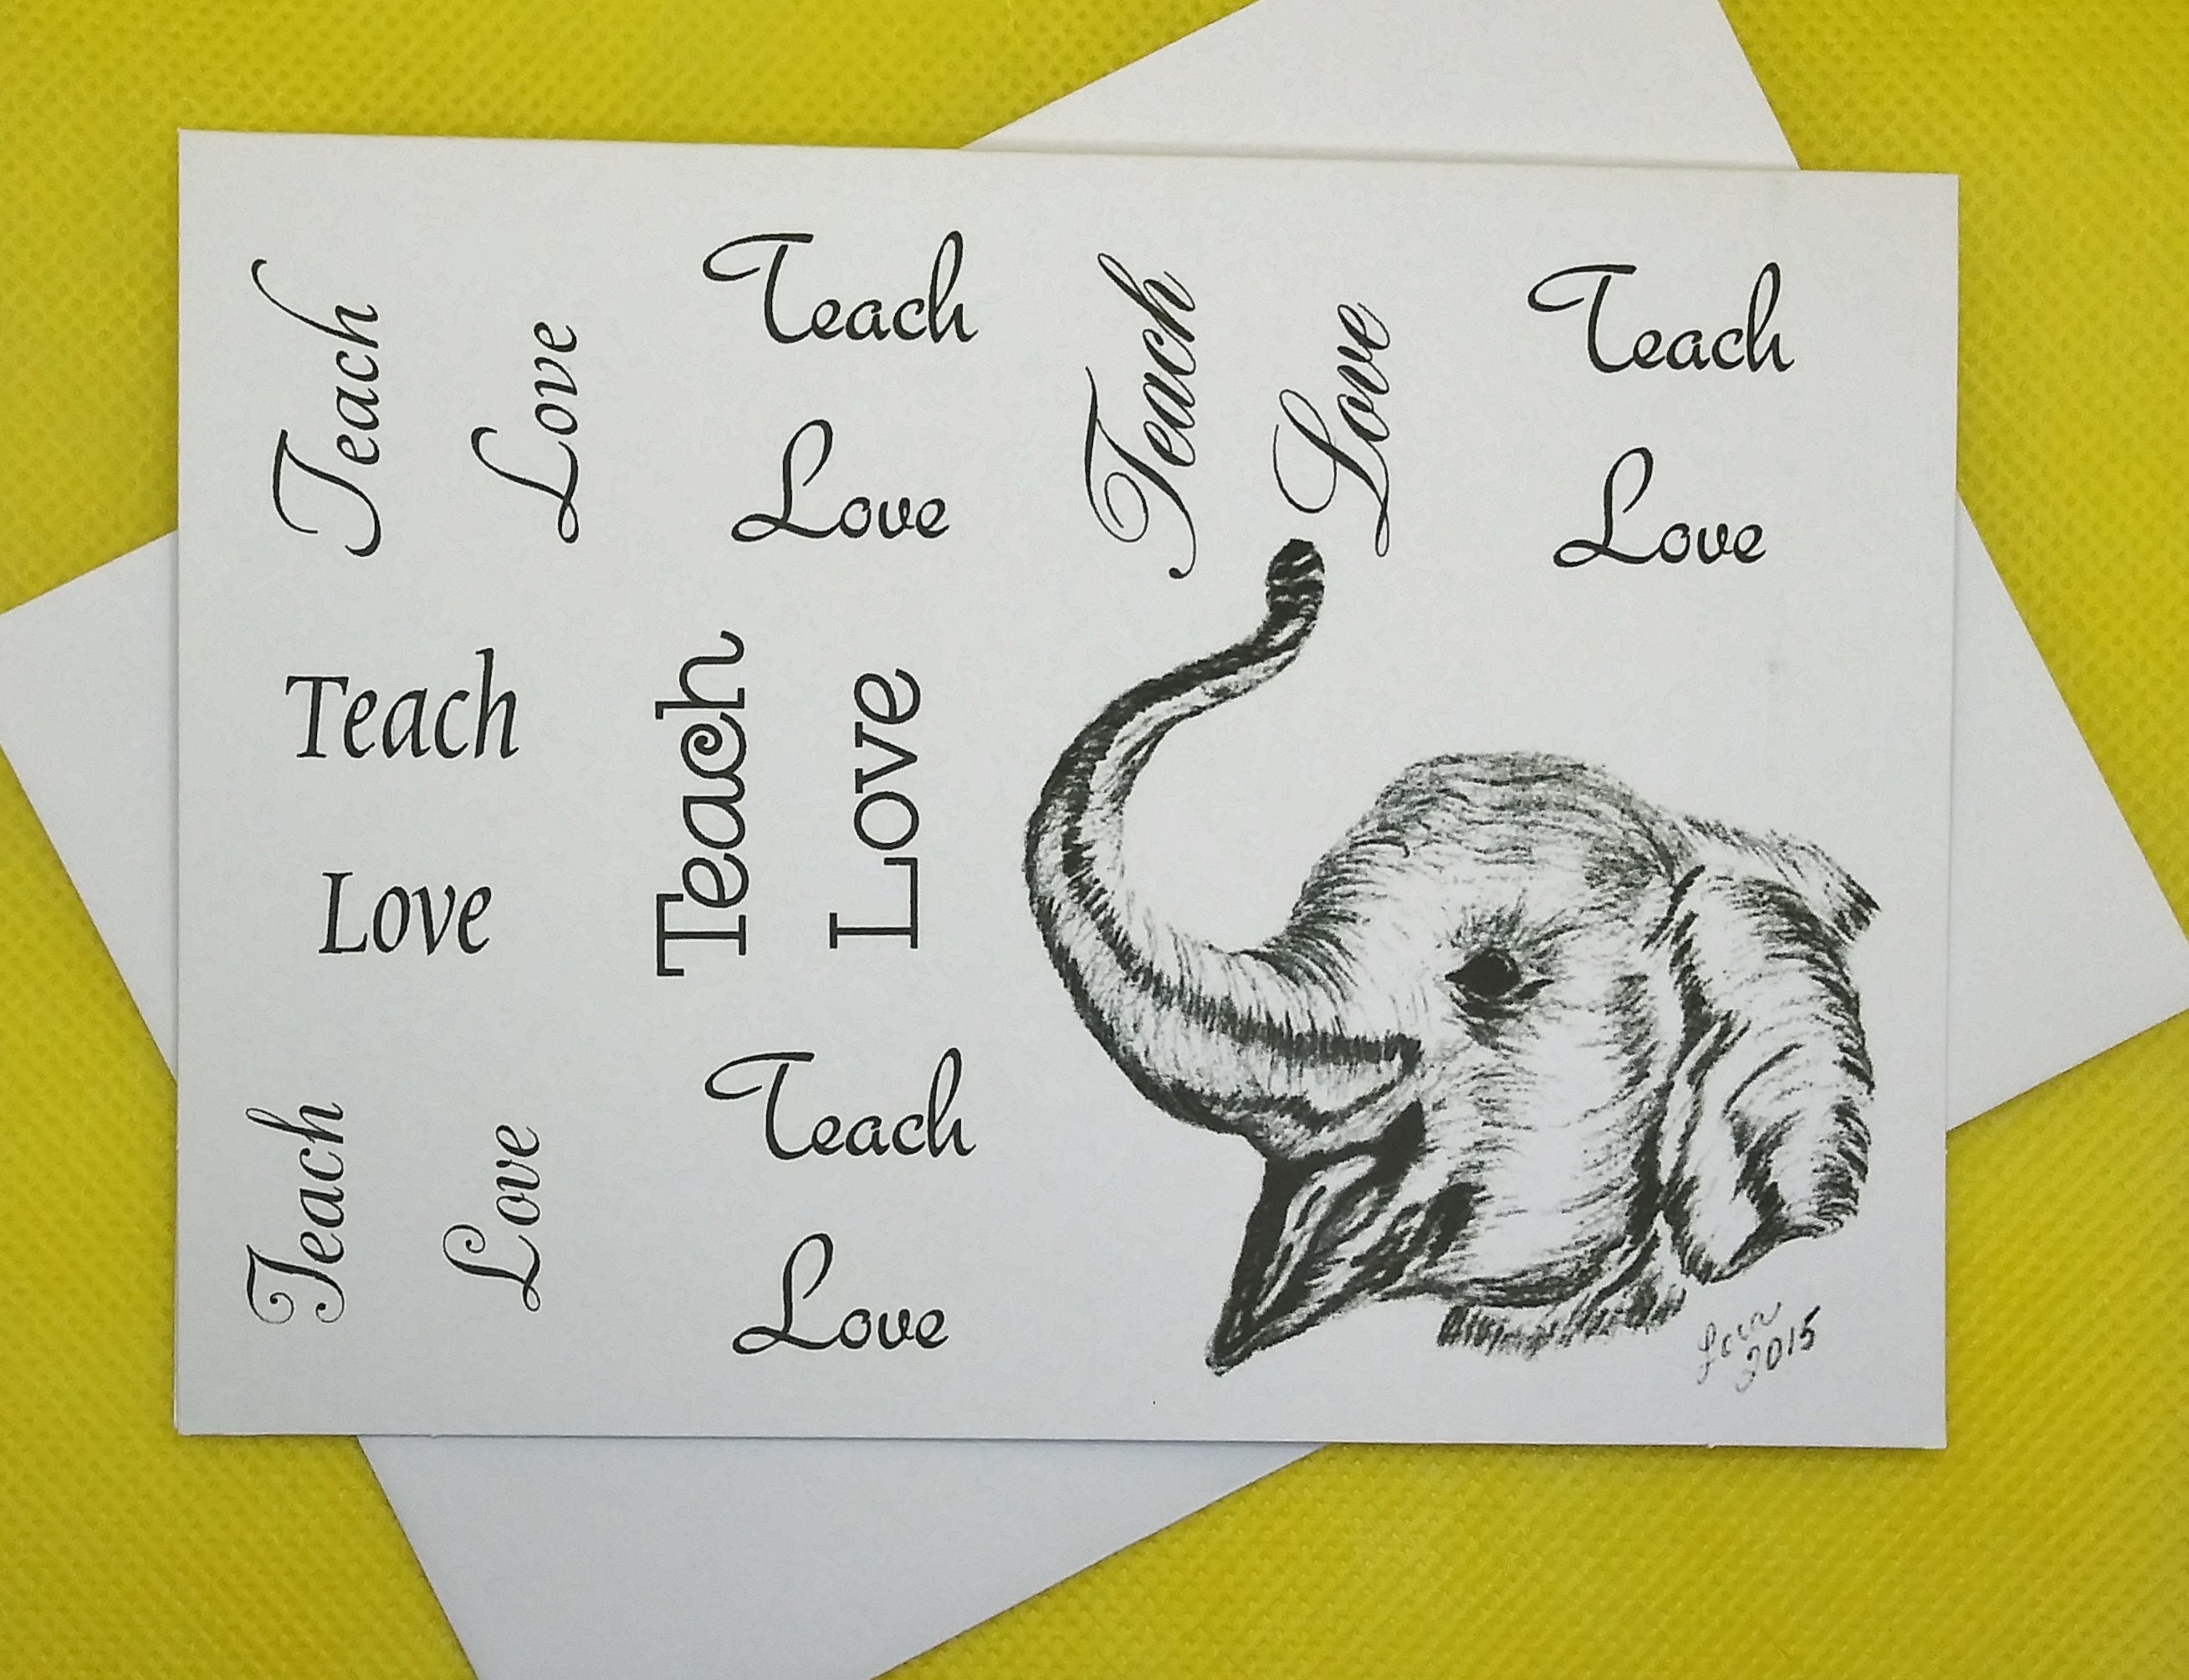 Teach
Love
Teach
Love
Teach
Love
Teach
Love
Teach
Love
Teach
Love
Teach
Love
Teach
Love
2015